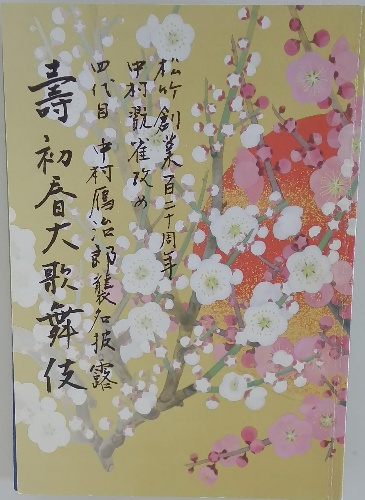 松竹創業百二十周年
中村翫雀改め
四代目 中村鴈治郎襲名披露
壽初春大歌舞伎